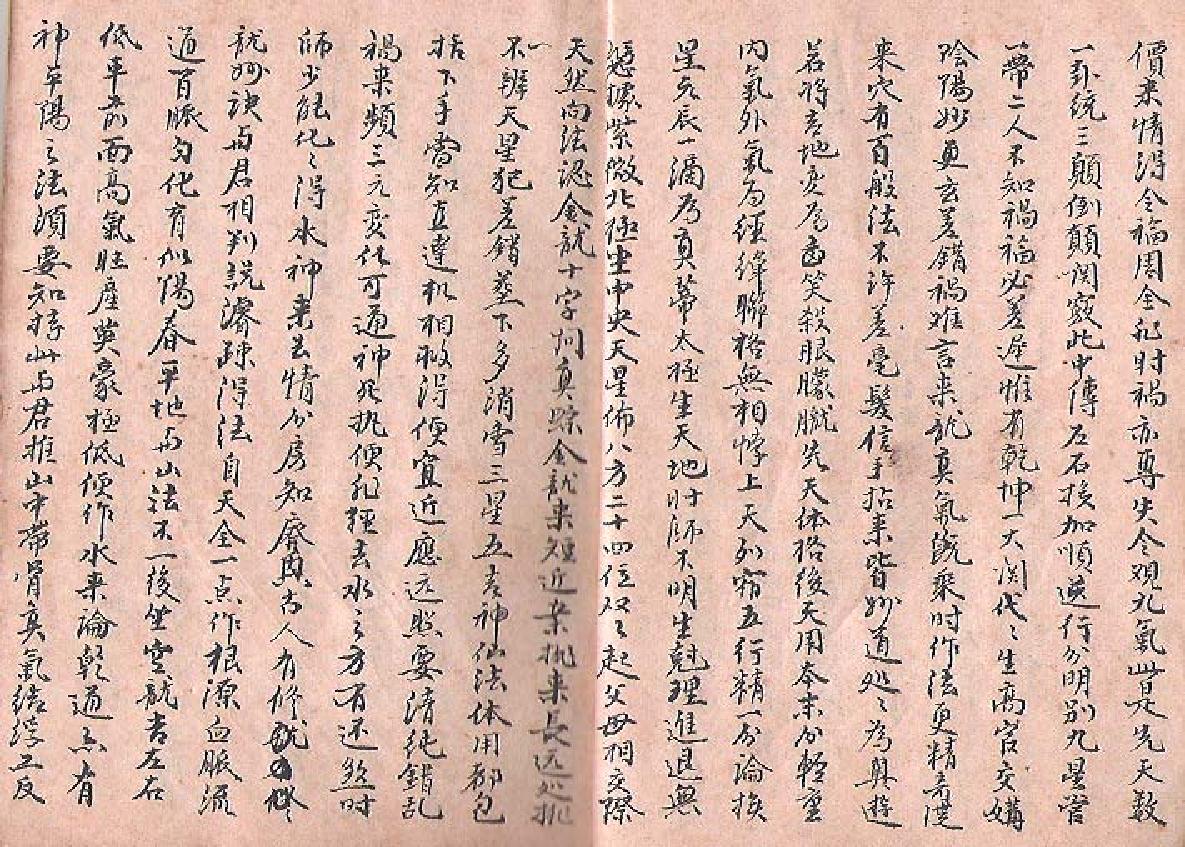 價来情得令福周全犯时禍亦專失令观九氣此是先天数
一卦統三顛倒顛関竅此中傳左右挨加順逆行分明别九星管
一蒂二人不知禍福必差遲惟有乾坤一大関代〻生高官交媾
陰陽妙更玄差錯禍难言来龍真氣旣乘时作法更精
来穴有百般法不許差毫髪信手拈来皆妙道処〻為興遊
若将吉地变为凶笑殺眼朦朧先天体格後天用本末分輕重
内氣外氣为經緯聯絡無相悖上天列宿五行精一分論挨
星元辰一滴为真蒂太極生天地时师不明生尅理進退無
憑據紫微北極坐中央天星佈八方二十四位双〻起父母相交際
天然向法認金龍十字同真踪金龍来短近来挑来長远処挑
不辨天星犯差錯葬下多消雪三星五吉神仙法体用都包
括下手當知直達机相救得便宜近應远照要清纯錯乱
禍来頻三元变化可通神死执便非經去水之方有还煞时
師少能化〻得水神来去情分房知廢興古人有修龍
龍妙诀与君相判説濬疎得法自天全一点作根源血脈流
通百脈勻化育似陽春平地与山法不一後坐空龍吉左右
低平前面高氣旺産英豪極低便作水来論乾通亦有
神平陽之法須要知持此与君推山中蒂骨真氣结浮土反